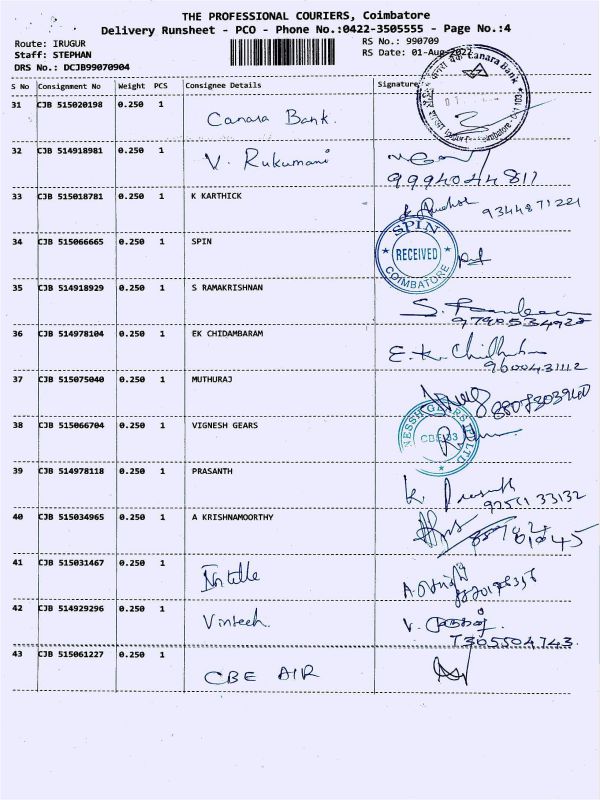 THE PROFESSIONAL COURIERS, Coimbatore
Delivery Runsheet - PCO - Phone No.:0422-3505555 - Page No.:4
Route: IRUGUR
RS No.: 990709
Staff: STEPHAN
RS Date: 01-Aug-2022
DRS No.: DCJB99070904
S No Consignment No Weight PCS Consignee Details Signature
Canara Bank
31 CJB 515020198 0.250 1 Canara Bank.
32 CJB 514918981 0.250 1 V. Rukumani
9994044811
33 CJB 515018781 0.250 1 K KARTHICK
9344871221
34 CJB 515066665 0.250 1 SPIN
SPIN
RECEIVED
COIMBATORE
35 CJB 514918929 0.250 1 S RAMAKRISHNAN
36 CJB 514978104 0.250 1 EK CHIDAMBARAM E.K.
9600431112
37 CJB 515075040 0.250 1 MUTHURAJ
38 CJB 515066704 0.250 1 VIGNESH GEARS
39 CJB 514978118 0.250 1 PRASANTH
40 CJB 515034965 0.250 1 A KRISHNAMOORTHY
41 CJB 515031467 0.250 1
42 CJB 514929296 0.250 1 Vintech.
43 CJB 515061227 0.250 1 CBE AIR